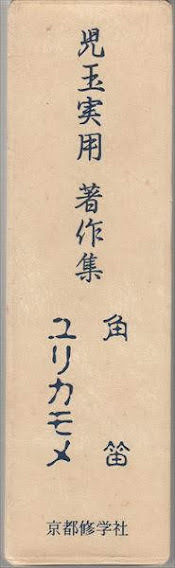 児玉実用 著作集
角笛
ユリカモメ
京都修学社